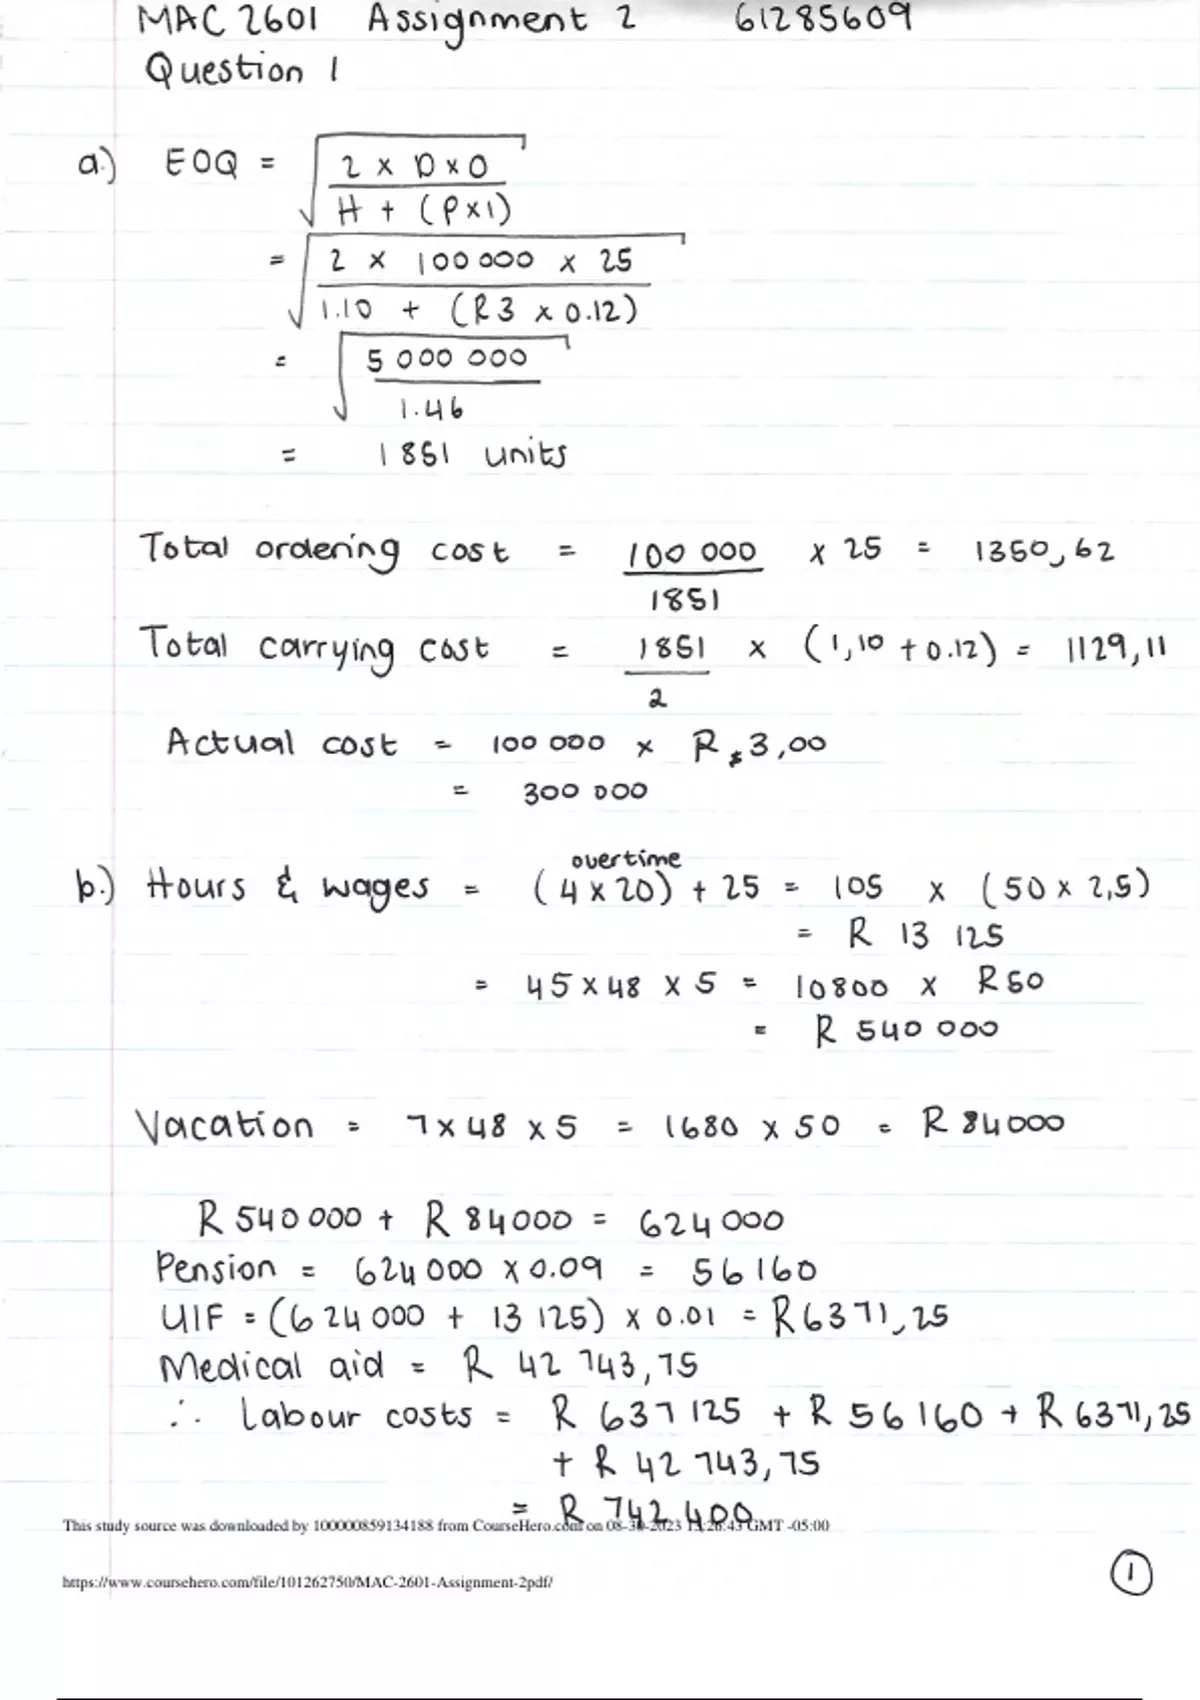 MAC 2601 Assignment 2 61285609
Question 1
a.) EOQ = √ 2 × D × O
H + (P×I)
= √ 2 × 100 000 × 25
1.10 + (R3 × 0.12)
= √ 5 000 000
1.46
= 1851 units
Total ordering cost = 100 000 × 25 = 1350,62
1851
Total carrying cost = 1851 × (1,10 + 0.12) = 1129,11
2
Actual cost = 100 000 × R 3,00
= 300 000
overtime
b.) Hours & wages = (4 × 20) + 25 = 105 × (50 × 2,5)
= R 13 125
= 45 × 48 × 5 = 10800 × R50
= R 540 000
Vacation = 7 × 48 × 5 = 1680 × 50 = R 84000
R 540 000 + R 84000 = 624 000
Pension = 624 000 × 0.09 = 56 160
UIF = (624 000 + 13 125) × 0.01 = R6371,25
Medical aid = R 42 743,75
∴ Labour costs = R 637 125 + R 56 160 + R 6371,25
+ R 42 743,75
= R 742 400
This study source was downloaded by 100000859134188 from CourseHero.com on 08-30-2023 13:26:43 GMT -05:00
https://www.coursehero.com/file/101262750/MAC-2601-Assignment-2pdf/
1